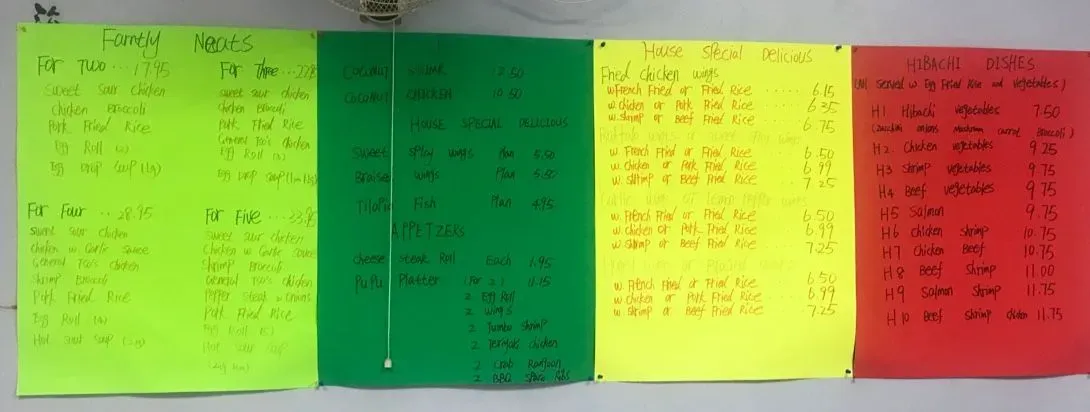 Famtly Neats
For Two ... 17.95
Sweet Sour Chicken
Chicken Broccoli
Pork Fried Rice
Egg Roll (2)
Egg Drop Soup (1 Lg)
For Three ... 22.95
Sweet Sour Chicken
Chicken Broccoli
Pork Fried Rice
General Tso's Chicken
Egg Roll (3)
Egg Drop Soup
For Four ... 28.95
Sweet Sour Chicken
Chicken w. Garlic Sauce
General Tso's Chicken
Shrimp Broccoli
Pork Fried Rice
Egg Roll (4)
Hot Sour Soup
For Five ... 33.95
Sweet Sour Chicken
Chicken w. Garlic Sauce
Shrimp Broccoli
General Tso's Chicken
Pepper Steak w. Onions
Pork Fried Rice
Egg Roll (5)
Hot Sour Soup
COCONUT 12.50
COCONUT CHICKEN 10.50
HOUSE SPECIAL DELICIOUS
Sweet Spicy wings Plan 5.50
Braise wings Plan 5.50
Tilapia Fish Plan 4.95
APPETZERS
Cheese Steak Roll Each 1.95
PuPu Platter (For 2) 11.15
2 Egg Roll
2 Wings
2 Jumbo Shrimp
2 Chicken
2 Crab Rangoon
2 BBQ Spare Ribs
House Special Delicious
Fried chicken wings
w. French Fried or Fried Rice ..... 6.15
w. chicken or Pork Fried Rice ..... 6.35
w. shrimp or Beef Fried Rice ..... 6.75
w. French Fried or Fried Rice ..... 6.50
w. chicken or Pork Fried Rice ..... 6.99
w. shrimp or Beef Fried Rice ..... 7.25
w. French Fried or Fried Rice ..... 6.50
w. chicken or Pork Fried Rice ..... 6.99
w. shrimp or Beef Fried Rice ..... 7.25
w. French Fried or Fried Rice ..... 6.50
w. chicken or Pork Fried Rice ..... 6.99
w. shrimp or Beef Fried Rice ..... 7.25
HIBACHI DISHES
(All Served w. Egg Fried Rice and Vegetables)
H1 Hibachi vegetables 7.50
(zucchini onions Mushroom carrot Broccoli)
H2 Chicken vegetables 9.25
H3 Shrimp vegetables 9.75
H4 Beef vegetables 9.75
H5 Salmon 9.75
H6 Chicken Shrimp 10.75
H7 Chicken Beef 10.75
H8 Beef Shrimp 11.00
H9 Salmon Shrimp 11.75
H10 Beef Shrimp chicken 11.75